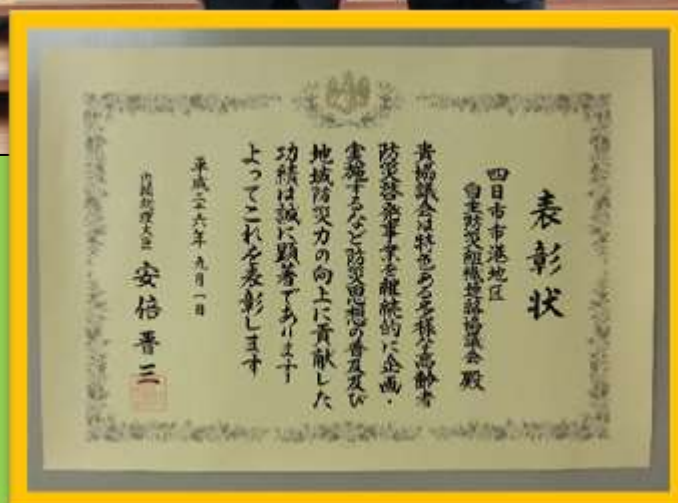 表彰状
四日市市港地区
自主防災組織連絡協議会 殿
貴協議会は特色ある多様な高齢者
防災啓発事業を継続的に企画・
実施するなど防災思想の普及及び
地域防災力の向上に貢献した
功績は誠に顕著であります
よってこれを表彰します
平成二十六年九月一日
内閣総理大臣 安倍晋三